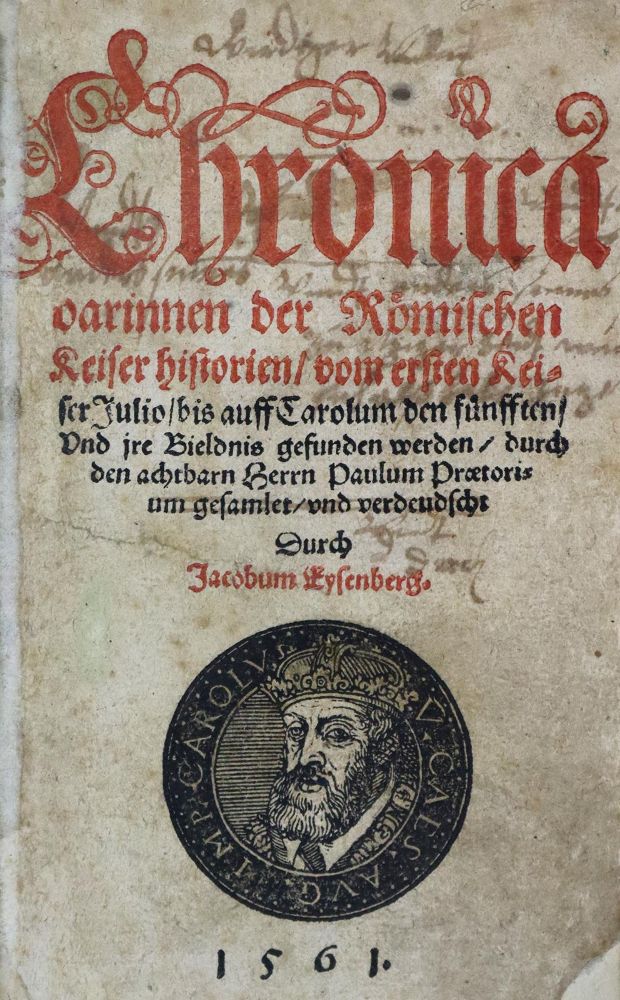 Chronica
darinnen der Römischen
Keiser historien/ vom ersten Kei-
ser Julio/ bis auff Carolum den fünfften/
Vnd jre Bieldnis gefunden werden/ durch
den achtbarn Herrn Paulum Prætori-
um gesamlet/ vnd verdeudscht
Durch
Jacobum Eysenberg.
IMP · CAROLVS · V · CAES · AVG ·
1561.